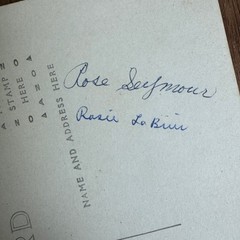 Rose Seymour
Rosie La Bier
STAMP
HERE
NAME AND ADDRESS HERE
RD